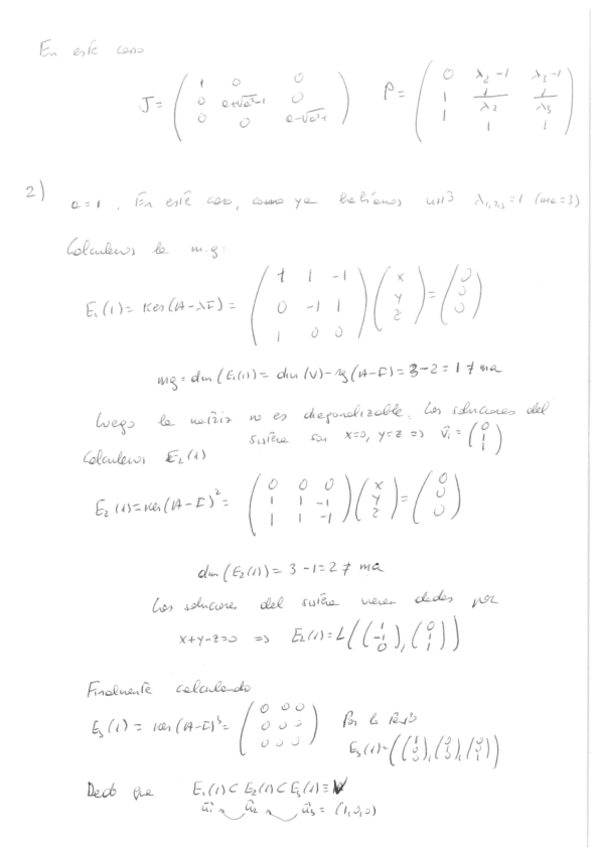 En este caso
J = ( 1 0 0 ; 0 a+√a²-1 0 ; 0 0 a-√a²-1 ) P = ( 0 λ₂-1 λ₃-1 ; 1 1/λ₂ 1/λ₃ ; 1 1 1 )
2) a=1. En este caso, como ya habíamos λ₁,₂,₃=1 (ma=3)
Calculemos la m.g:
E₁(1) = Ker(A-λI) = ( 1 1 -1 ; 0 -1 1 ; 1 0 0 ) ( x ; y ; z ) = ( 0 ; 0 ; 0 )
mg = dim(E₁(1)) = dim(V) - rg(A-I) = 3-2 = 1 ≠ ma
Luego la matriz no es diagonalizable. Las soluciones del
sistema son x=0, y=z => v̄₁ = ( 0 ; 1 ; 1 )
Calculemos E₂(1)
E₂(1) = Ker(A-I)² = ( 0 0 0 ; 1 1 -1 ; 1 1 -1 ) ( x ; y ; z ) = ( 0 ; 0 ; 0 )
dim(E₂(1)) = 3-1 = 2 ≠ ma
Las soluciones del sistema vienen dadas por
x+y-z=0 => E₂(1) = L( ( 1 ; -1 ; 0 ), ( 0 ; 1 ; 1 ) )
Finalmente calculando
E₃(1) = Ker(A-I)³ = ( 0 0 0 ; 0 0 0 ; 0 0 0 ) Por lo
E₃(1) = ( ( 1 ; 0 ; 0 ), ( 0 ; 1 ; 0 ), ( 0 ; 0 ; 1 ) )
Dado que E₁(1) ⊂ E₂(1) ⊂ E₃(1) ≡ V
ū₁ ū₂ ū₃ = (1,0,0)